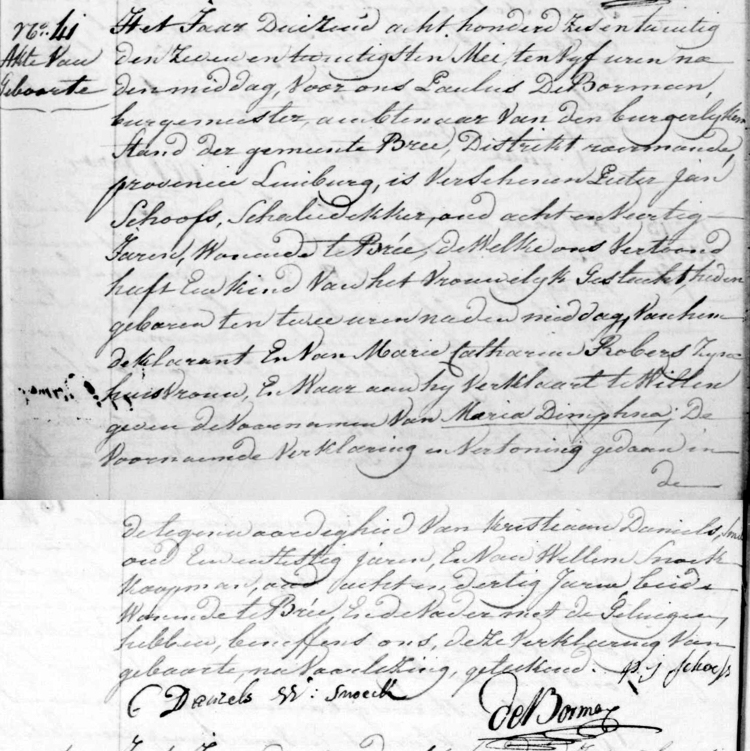 No. 41
Akte van
Geboorte
Het Jaar Duizend acht honderd zesentwintig
den zeven en twintigsten Mei, ten vyf uren na
den middag, voor ons Paulus De Borman,
burgemeester, ambtenaar van den burgerlyken
Stand der gemeente Brée, Distrikt roermonde,
provincie Limburg, is Verschenen Pieter Jan
Schoofs, Schaliedekker, oud acht en veertig
Jaren, Wonende te Brée, de Welke ons Vertoond
heeft Een kind Van het Vrouwelyk Geslacht, heden
geboren ten twee uren na den middag, Van hem
deklarant En Van Marie Catharine Robers Zyne
huisvrouw, En Waar aan hy Verklaart te Willen
geven de Voornamen Van Maria Dimphna; De
Voornoemde Verklaring en Vertoning gedaan in
de
de tegenwoordigheid Van Kristiaan Daniels,
oud Een en Jaren, En Van Willem Snoek
Koopman, oud acht en dertig Jaren beide
Wonende te Brée, En de Vader met de Getuigen,
hebben, beneffens ons, deze Verklaring Van
geboorte, na Voorlezing, geteekend. P. J Schoofs
C Daniels W: Snoeck
de Borman